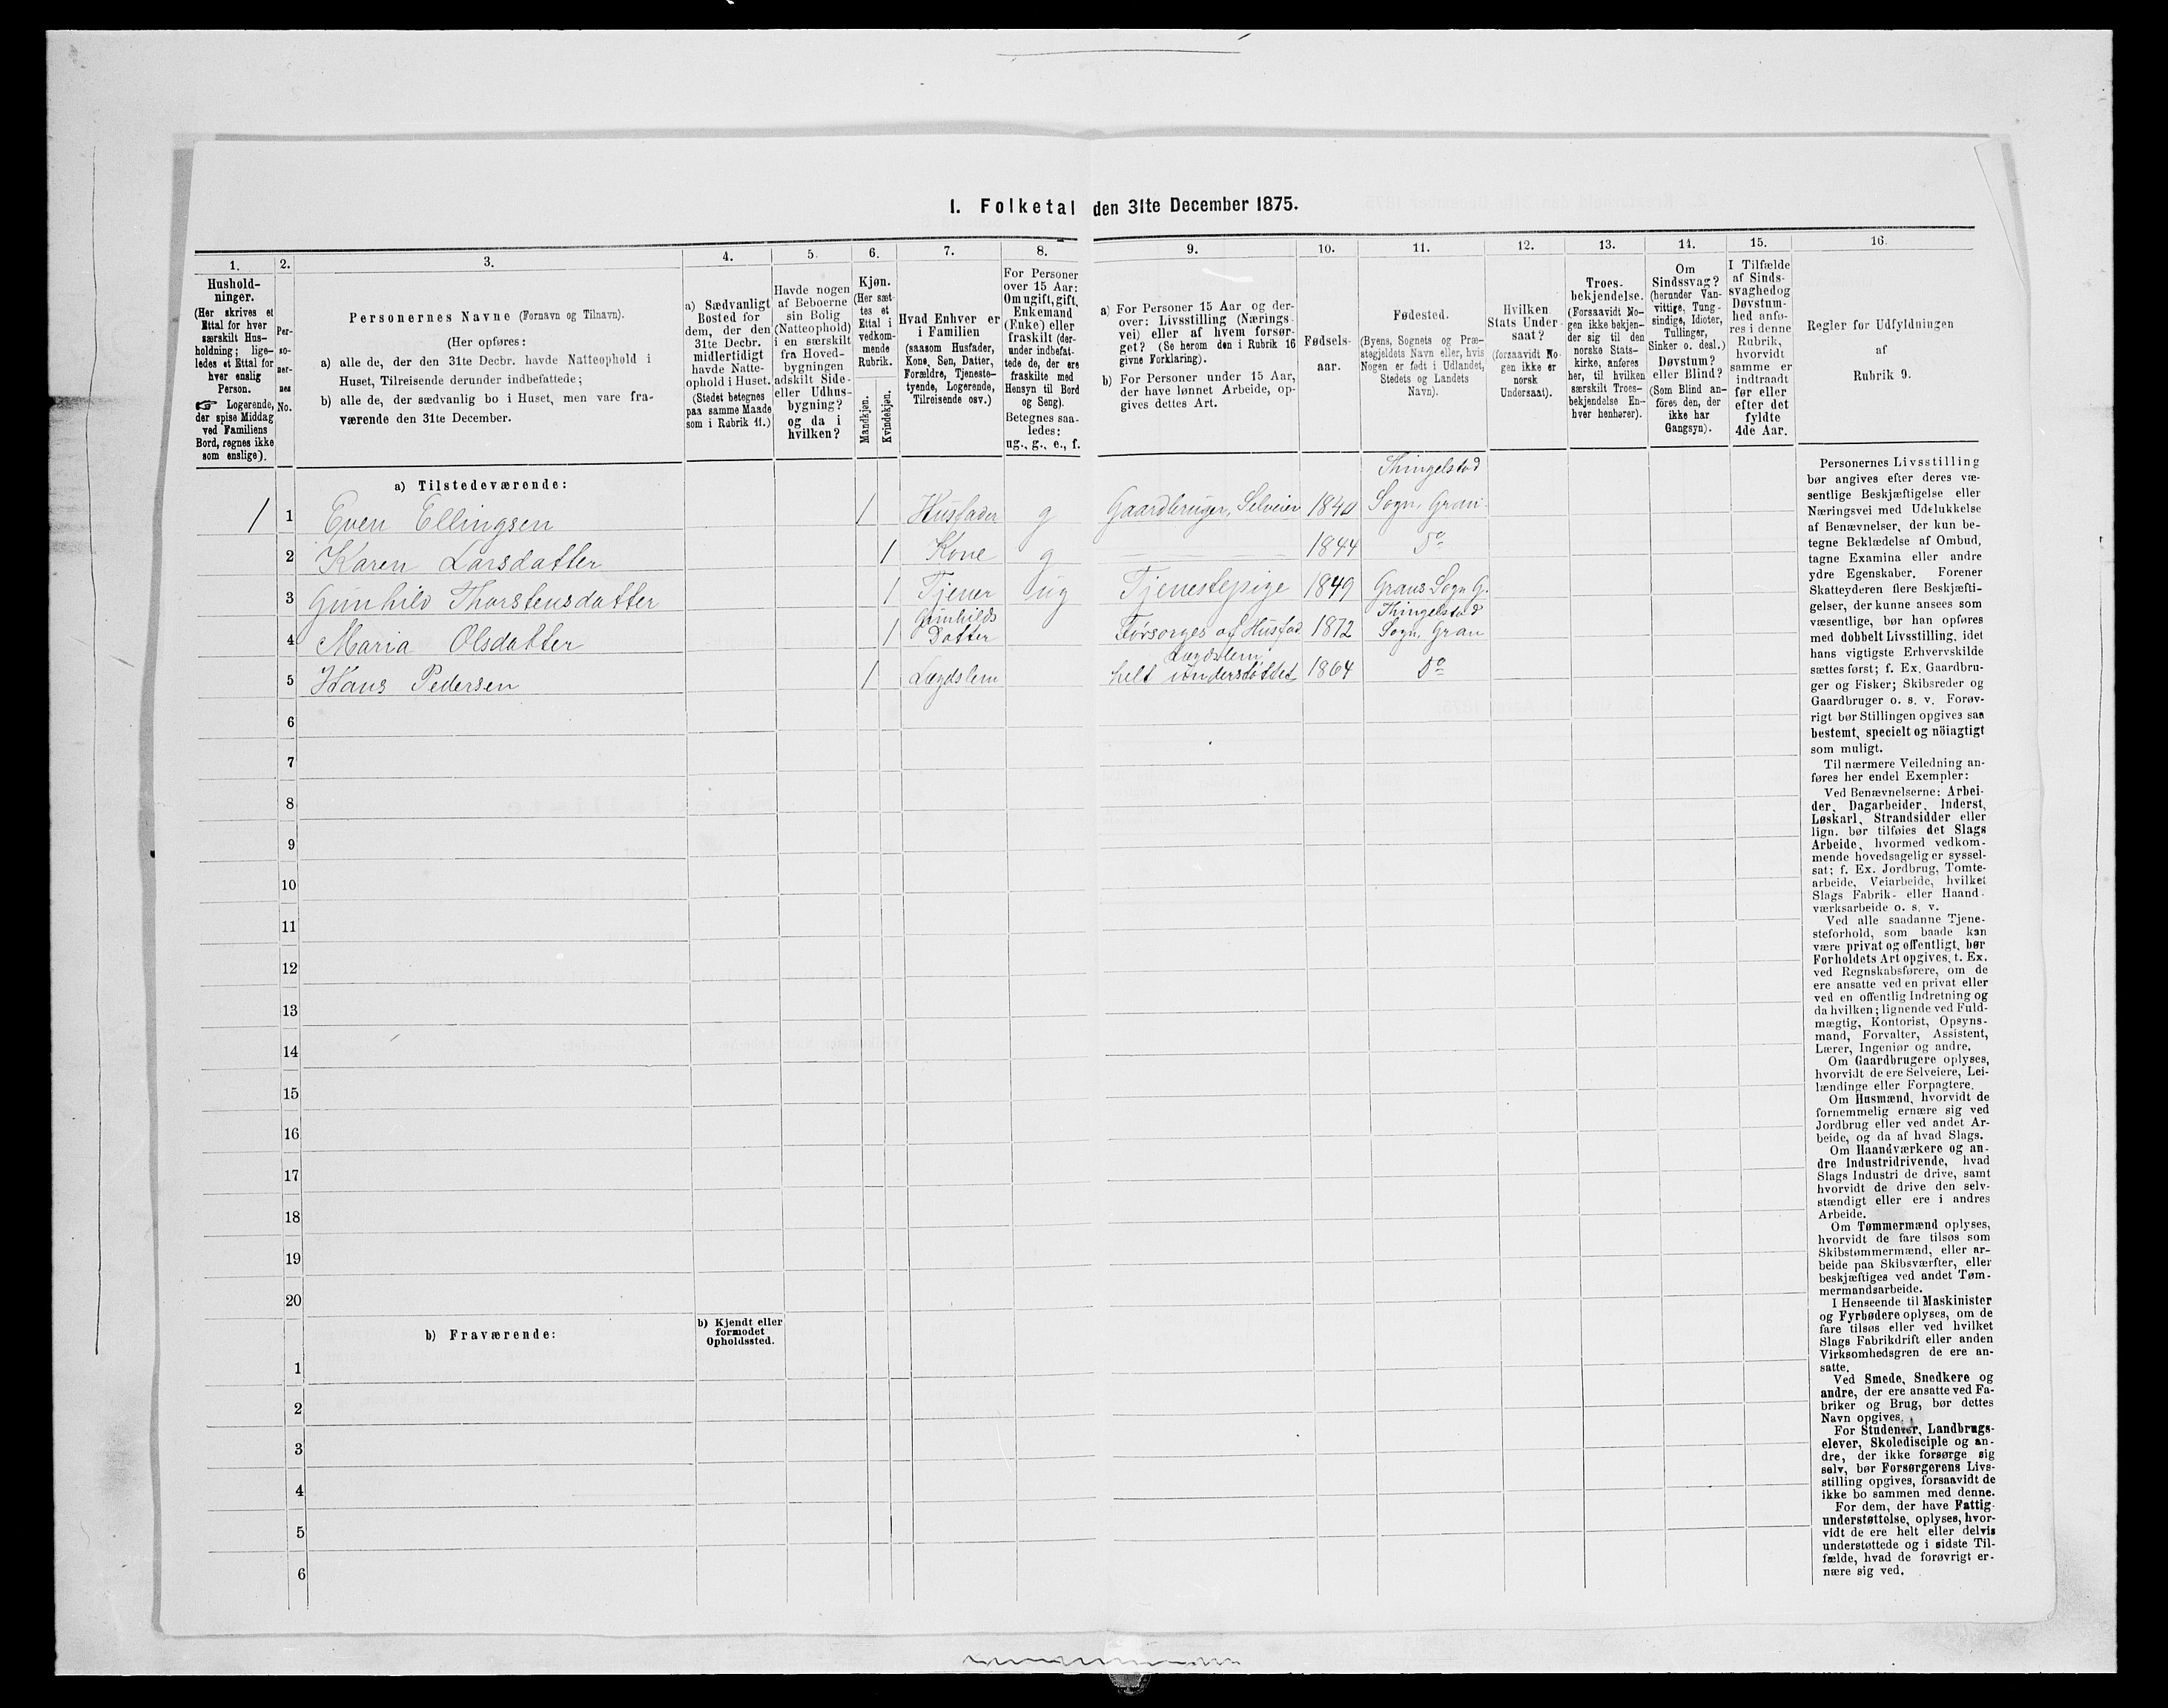 I. Folketal den 31te December 1875.
1.
Hushold-
ninger.
(Her skrives et
Ettal for hver
særskilt Hus-
holdning; lige-
ledes et Ettal for
hver enslig
Person.
☞ Logerende,
der spise Middag
ved Familiens
Bord, regnes ikke
som enslige).
2.
Per-
so-
ner-
nes
No.
3.
Personernes Navne (Fornavn og Tilnavn).
(Her opføres:
a) alle de, der den 31te Decbr. havde Natteophold i
Huset, Tilreisende derunder indbefattede;
b) alle de, der sædvanlig bo i Huset, men vare fra-
værende den 31te December.
4.
a) Sædvanligt
Bosted for
dem, der den
31te Decbr.
midlertidigt
havde Natte-
ophold i Huset.
(Stedet betegnes
paa samme Maade
som i Rubrik 11.)
5.
Havde nogen
af Beboerne
sin Bolig
(Natteophold)
i en særskilt
fra Hoved-
bygningen
adskilt Side-
eller Udhus-
bygning?
og da i
hvilken?
6.
Kjøn.
(Her sæt-
tes et
Ettal i
vedkom-
mende
Rubrik.
Mandkjøn.
Kvindekjøn.
7.
Hvad Enhver er
i Familien
(saasom Husfader,
Kone, Søn, Datter,
Forældre, Tjeneste-
tyende, Logerende,
Tilreisende osv.)
8.
For Personer
over 15 Aar:
Om ugift, gift,
Enkemand
(Enke) eller
fraskilt (der-
under indbefat-
tede de, der ere
fraskilte med
Hensyn til Bord
og Seng).
Betegnes saa-
ledes:
ug., g., e., f.
9.
a) For Personer 15 Aar og der-
over: Livsstilling (Nærings-
vei) eller af hvem forsør-
get? (Se herom den i Rubrik 16
givne Forklaring).
b) For Personer under 15 Aar,
der have lønnet Arbeide, op-
gives dettes Art.
10.
Fødsels-
aar.
11.
Fødested.
(Byens, Sognets og Præ-
stegjeldets Navn eller, hvis
Nogen er født i Udlandet,
Stedets og Landets
Navn).
12.
Hvilken
Stats Under-
saat?
(forsaavidt No-
gen ikke er
norsk
Undersaat).
13.
Troes-
bekjendelse.
(Forsaavidt No-
gen ikke bekjen-
der sig til den
norske Stats-
kirke, anføres
her, til hvilken
særskilt Troes-
bekjendelse En-
hver henhører).
14.
Om
Sindssvag?
(herunder Van-
vittige, Tung-
sindige, Idioter,
Tullinger,
Sinker o. desl.)
Døvstum?
eller Blind?
(Som Blind an-
føres den, der
ikke har
Gangsyn).
15.
I Tilfælde
af Sinds-
svaghed og
Døvstum-
hed anfø-
res i denne
Rubrik,
hvorvidt
samme er
indtraadt
før eller
efter det
fyldte
4de Aar.
16.
Regler for Udfyldningen
af
Rubrik 9.
a) Tilstedeværende:
Thingelstad
1 1 Even Ellingsen 1 Husfader g Gaardbruger, Selveier 1840 Sogn, Gran
2 Karen Larsdatter 1 Kone g 1844 Do
3 Gunhild Thorstensdatter 1 Tjener ug Tjenestepige 1849 Grans Sogn G.
Gunhilds Thingelstad
4 Maria Olsdatter 1 Datter Forsorges af Husfad 1872 Sogn, Gran
Lægdslem,
5 Hans Pedersen 1 Lægdslem helt understøttet 1864 Do
6
7
8
9
10
11
12
13
14
15
16
17
18
19
20
b) Fraværende:
b) Kjendt eller
formodet
Opholdssted.
1
2
3
4
5
6
Personernes Livsstilling
bør angives efter deres væ-
sentlige Beskjæftigelse eller
Næringsvei med Udelukkelse
af Benævnelser, der kun be-
tegne Beklædelse af Ombud,
tagne Examina eller andre
ydre Egenskaber. Forener
Skatteyderen flere Beskjæfti-
gelser, der kunne ansees som
væsentlige, bør han opføres
med dobbelt Livsstilling, idet
hans vigtigste Erhvervskilde
sættes først; f. Ex. Gaardbru-
ger og Fisker; Skibsreder og
Gaardbruger o. s. v. Forøv-
rigt bør Stillingen opgives saa
bestemt, specielt og nöiagtigt
som muligt.
Til nærmere Veiledning an-
føres her endel Exempler:
Ved Benævnelserne: Arbei-
der, Dagarbeider, Inderst,
Løskarl, Strandsidder eller
lign. bør tilføies det Slags
Arbeide, hvormed vedkom-
mende hovedsagelig er syssel-
sat; f. Ex. Jordbrug, Tomte-
arbeide, Veiarbeide, hvilket
Slags Fabrik- eller Haand-
værksarbeide o. s. v.
Ved alle saadanne Tjene-
steforhold, som baade kan
være privat og offentligt, bør
Forholdets Art opgives, t. Ex.
ved Regnskabsførere, om de
ere ansatte ved en privat eller
ved en offentlig Indretning og
da hvilken; lignende ved Fuld-
mægtig, Kontorist, Opsyns-
mand, Forvalter, Assistent,
Lærer, Ingeniør og andre.
Om Gaardbrugere oplyses,
hvorvidt de ere Selveiere, Lei-
lændinge eller Forpagtere.
Om Husmænd, hvorvidt de
fornemmelig ernære sig ved
Jordbrug eller ved andet Ar-
beide, og da af hvad Slags.
Om Haandværkere og an-
dre Industridrivende, hvad
Slags Industri de drive, samt
hvorvidt de drive den selv-
stændigt eller ere i andres
Arbeide.
Om Tømmermænd oplyses,
hvorvidt de fare tilsøs som
Skibstømmermænd, eller ar-
beide paa Skibsværfter, eller
beskjæftiges ved andet Tøm-
mermandsarbeide.
I Henseende til Maskinister
og Fyrbødere oplyses, om de
fare tilsøs eller ved hvilket
Slags Fabrikdrift eller anden
Virksomhedsgren de ere an-
satte.
Ved Smede, Snedkere og
andre, der ere ansatte ved Fa-
briker og Brug, bør dettes
Navn opgives.
For Studenter, Landbrugs-
elever, Skoledisciple og an-
dre, der ikke forsørge sig
selv, bør Forsørgerens Livs-
stilling opgives, forsaavidt de
ikke bo sammen med denne.
For dem, der have Fattig-
understøttelse, oplyses, hvor-
vidt de ere helt eller delvis
understøttede og i sidste Til-
fælde, hvad de forøvrigt er-
nære sig ved.